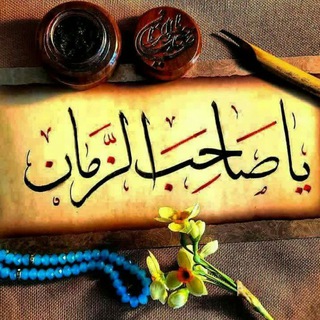 يا صَاحِبَ الزَّمان